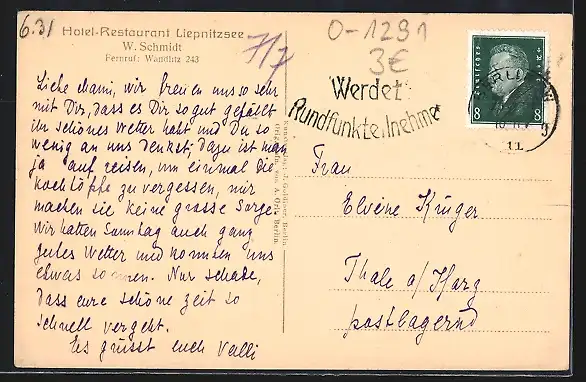 6.31
Hotel-Restaurant Liepnitzsee
W. Schmidt
Fernruf: Wandlitz 243
7/7
0-1291
3€
Werdet
Rundfunkteilnehmer
Deutsches Reich
8 8
BERLIN
11
Liebe Mami, wir freuen uns so sehr
mit Dir, dass es Dir so gut gefällt
ihr schönes Wetter habt und Du so
wenig an uns denkst; Dazu ist man
ja auf reisen, um einmal die
kochtöppe zu vergessen, mir
machen sie keine grosse Sorge
wir hatten Sonntag auch ganz
gutes Wetter und konnten uns
etwas sonnen. Nur schade,
dass eure schöne Zeit so
schnell vergeht.
Es grüsst euch Valli
Kunstverlag J. Goldiner, Berlin.
Originalaufn. von A. Ort, Berlin.
Frau
Elvine Krüger
Thale a/Harz
postlagernd